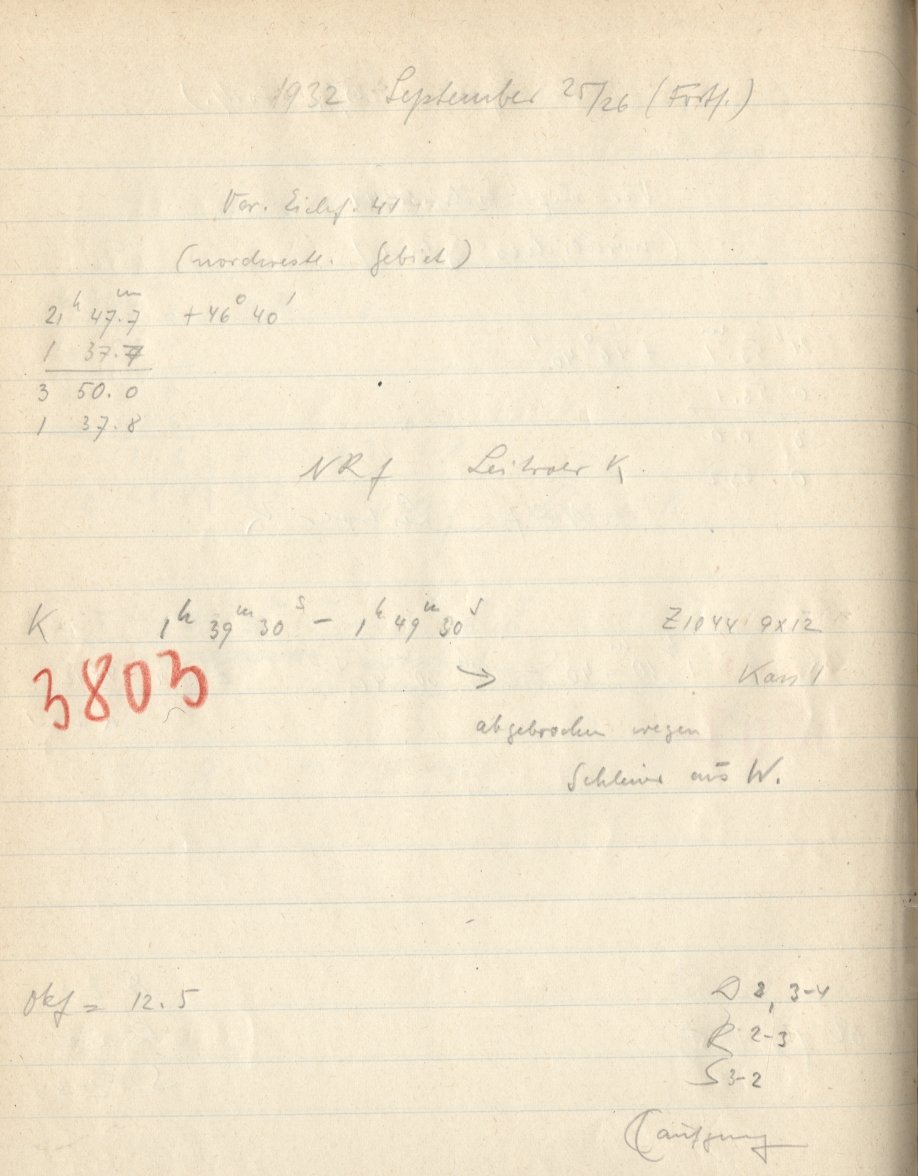 1932 September 25/26 (Forts.)
Var. Eichf. 41
(nordwestl. Gebiet)
21ʰ 47.7ᵐ +46° 40'
1 37.7
3 50.0
1 37.8
NRf Leitrohr K
K 1ʰ 39ᵐ 30ˢ – 1ʰ 49ᵐ 30ˢ Z1044 9x12
3803 → Kass 1
abgebrochen wegen
Schleier aus W.
Okf = 12.5
D 2, 3-4
R 2-3
S 3-2